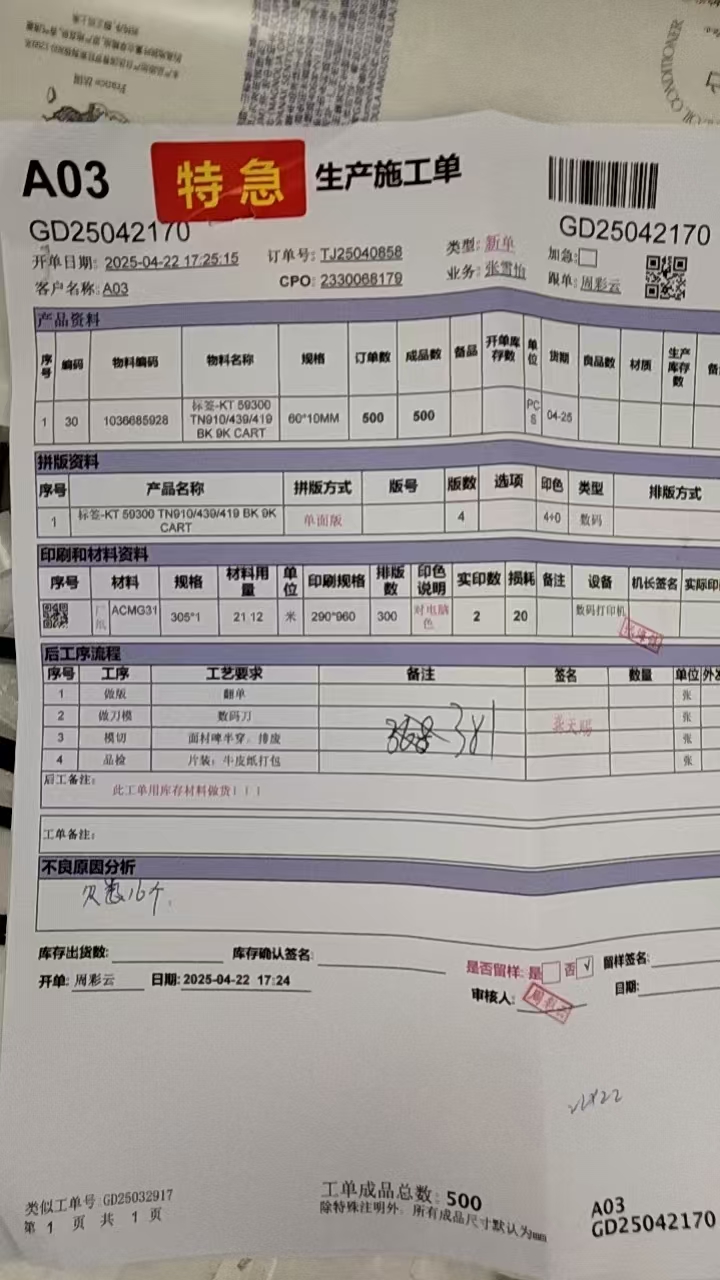 A03 特急 生产施工单
GD25042170 GD25042170
开单日期: 2025-04-22 17:25:15 订单号: TJ25040858 类型: 新单 加急:
客户名称: A03 CPO: 2330068179 业务: 张雪怡 跟单: 周彩云
产品资料
序号 编码 物料编码 物料名称 规格 订单数 成品数 备品 开单库存数 单位 货期 良品数 材质 生产库存数
1 30 1036685928 标签-KT 59300 TN910/439/419 BK 9K CART 60*10MM 500 500 PCS 04-25
拼版资料
序号 产品名称 拼版方式 版号 版数 选项 印色 类型 排版方式
1 标签-KT 59300 TN910/439/419 BK 9K CART 单面版 4 4+0 数码
印刷和材料资料
序号 材料 规格 材料用量 单位 印刷规格 排版数 印色说明 实印数 损耗 备注 设备 机长签名 实际印
ACMG31 305*1 21.12 米 290*960 300 对电脑色 2 20 数码打印机
后工序流程
序号 工序 工艺要求 备注 签名 数量 单位 外发
1 做版 翻单 张
2 做刀模 数码刀 张
3 模切 面材啤半穿, 排废 381 张
4 品检 片装; 牛皮纸打包 张
后工备注:
此工单用库存材料做货!!!
工单备注:
不良原因分析
欠数16个.
库存出货数: 库存确认签名: 是否留样: 是 否 √ 留样签名:
开单: 周彩云 日期: 2025-04-22 17:24 审核人: 日期:
类似工单号:GD25032917 工单成品总数: 500 A03
第 1 页 共 1 页 除特殊注明外, 所有成品尺寸默认为mm GD25042170